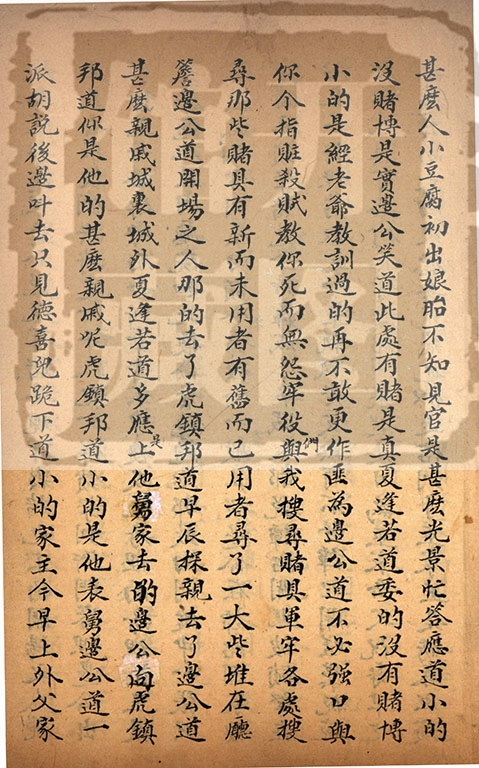 甚麽人小豆腐初出娘胎不知見官是甚麽光景忙答應道小的
没賭博是實邊公笑道此處有賭是真夏逢若道委的没有賭博
小的是經老爺教訓過的再不敢更作匪為邊公道不必强口與
你个指賍殺賊教你死而無怨牢役們與我搜尋賭具軍牢各處搜
尋那些賭具有新而未用者有舊而已用者尋了一大些堆在廳
簷邊公道開場之人那的去了虎鎮邦道早辰探親去了邊公道
甚麽親戚城裏城外夏逢若道多應是上他舅家去的邊公向虎鎮
邦道你是他的甚麽親戚呢虎鎮邦道小的是他表舅邊公道一
派胡説後邊叶去只見德喜兒跪下道小的家主今早上外父家